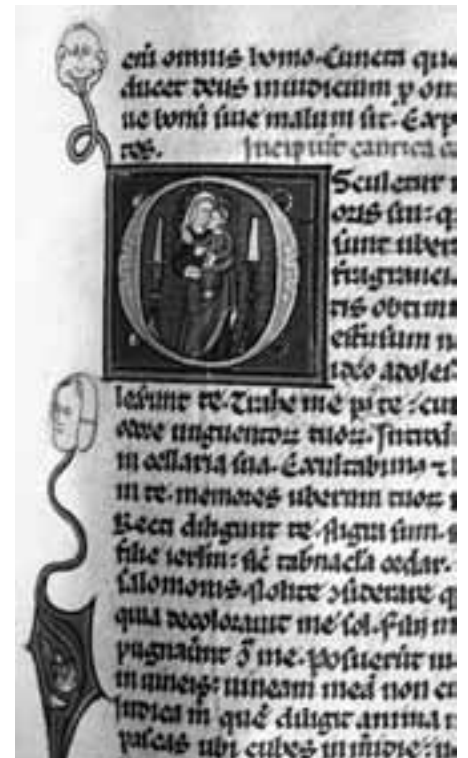 eni omnis homo. Cuncta que
ducet deus in iudicium p om
ue bonū siue malum sit. Exp
ros. Incipiūt cantica ca
O Sculetur
oris sui: q
sunt uber
fragrancia
tis optimi
effusum n
ideo adoles
lexunt te. Trahe me p⁹ te: cur
odore unguentoꝝ tuoꝝ. Introd
in cellaria sua. Exultabimus ⁊
in te. memores uberum tuoꝝ
Recti diligunt te. Nigra sum. s
filie ierlm̄: sic̄ tab̄nacl̄a cedar.
salomonis. Nolite ꝯsiderare q
quia decolorauit me sol. Filij m
pugnauer̄t ꝯ me. posuerūt m
in uineis: uineam meā non cu
Indica m̄ quē diligit anima m
pascas ubi cubes in m̄idie: ne